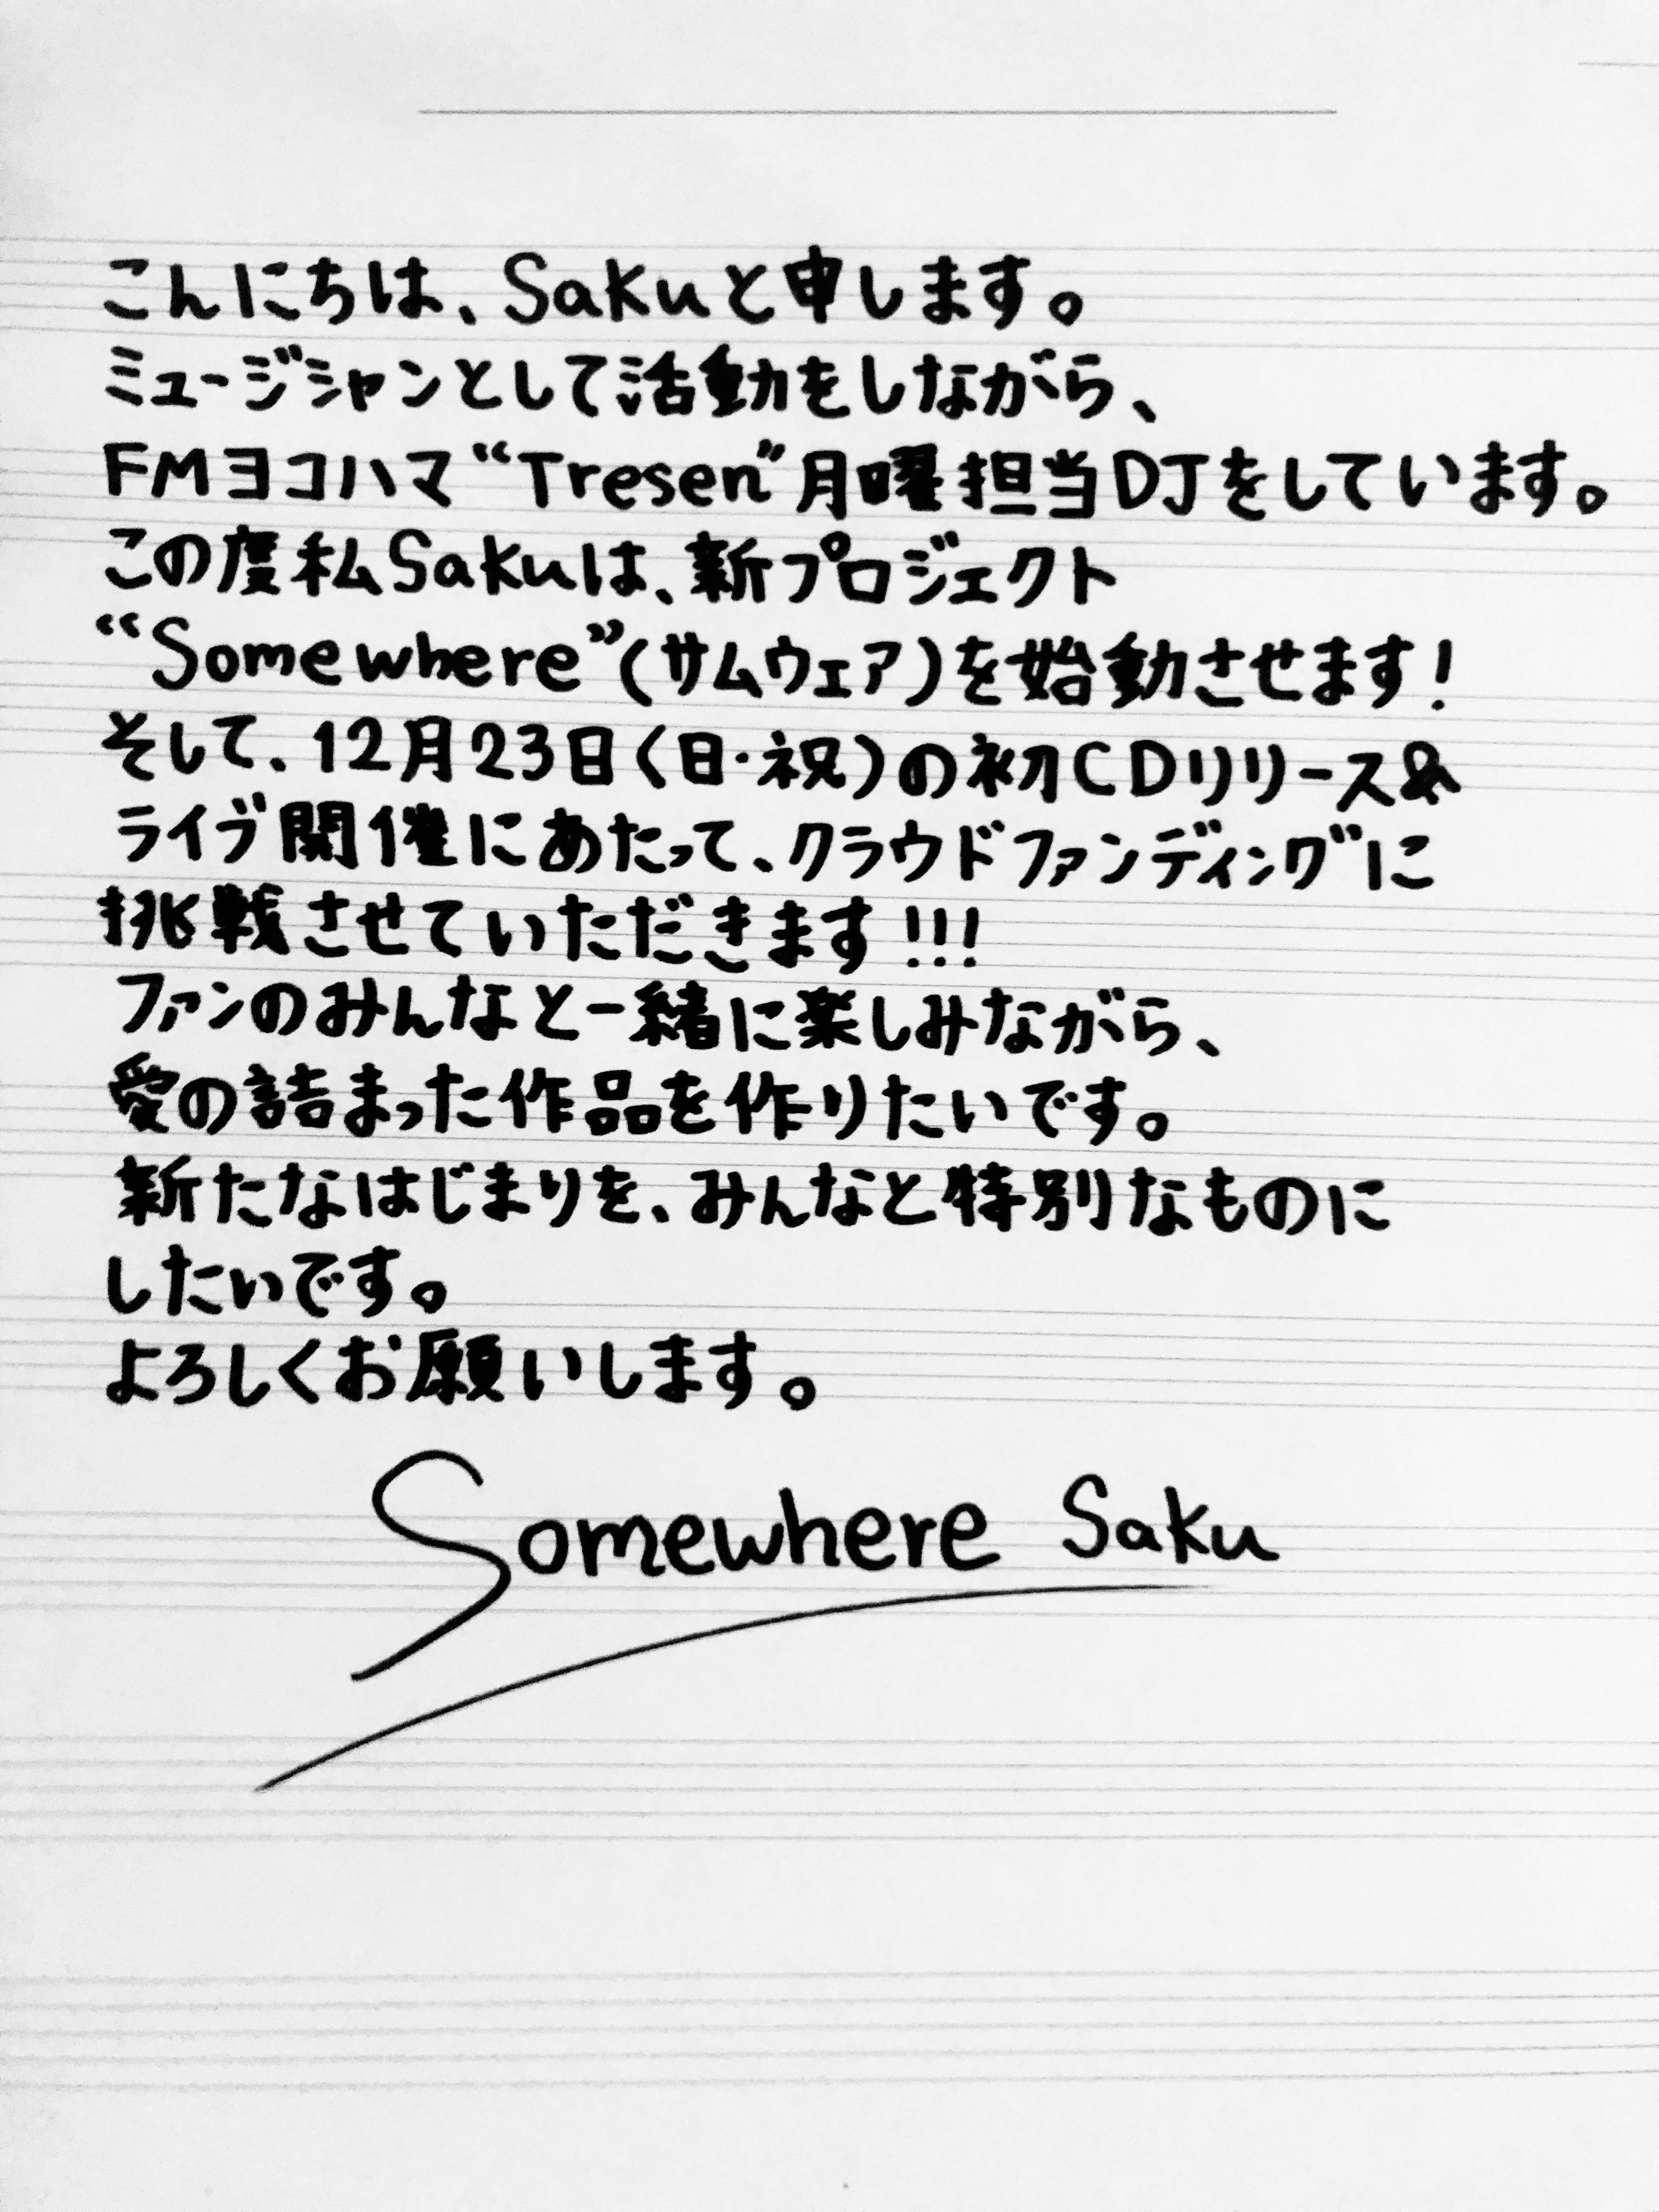 こんにちは、Sakuと申します。
ミュージシャンとして活動をしながら、
FMヨコハマ“Tresen”月曜担当DJをしています。
この度私Sakuは、新プロジェクト
“Somewhere”(サムウェア)を始動させます!
そして、12月23日(日・祝)の初CDリリース&
ライブ開催にあたって、クラウドファンディングに
挑戦させていただきます!!!
ファンのみんなと一緒に楽しみながら、
愛の詰まった作品を作りたいです。
新たなはじまりを、みんなと特別なものに
したいです。
よろしくお願いします。
Somewhere Saku